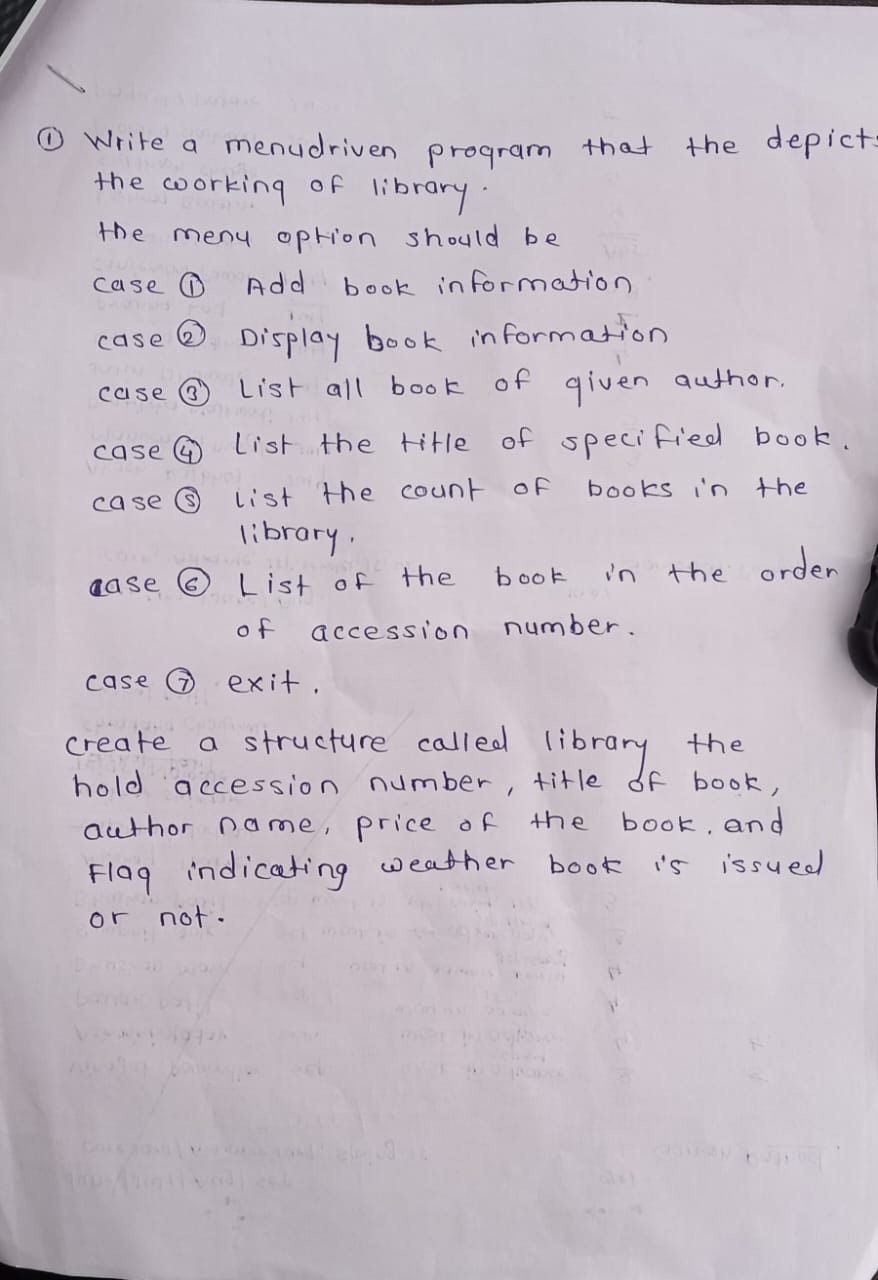 ① Write a menudriven program that the depicts
the working of library.
the menu option should be
case ① Add book information
case ② Display book information
case ③ List all book of given author.
case ④ List the title of specified book.
case ⑤ List the count of books in the
library.
case ⑥ List of the book in the order
of accession number.
case ⑦ exit.
create a structure called library the
hold accession number, title of book,
author name, price of the book, and
Flag indicating weather book is issued
or not.